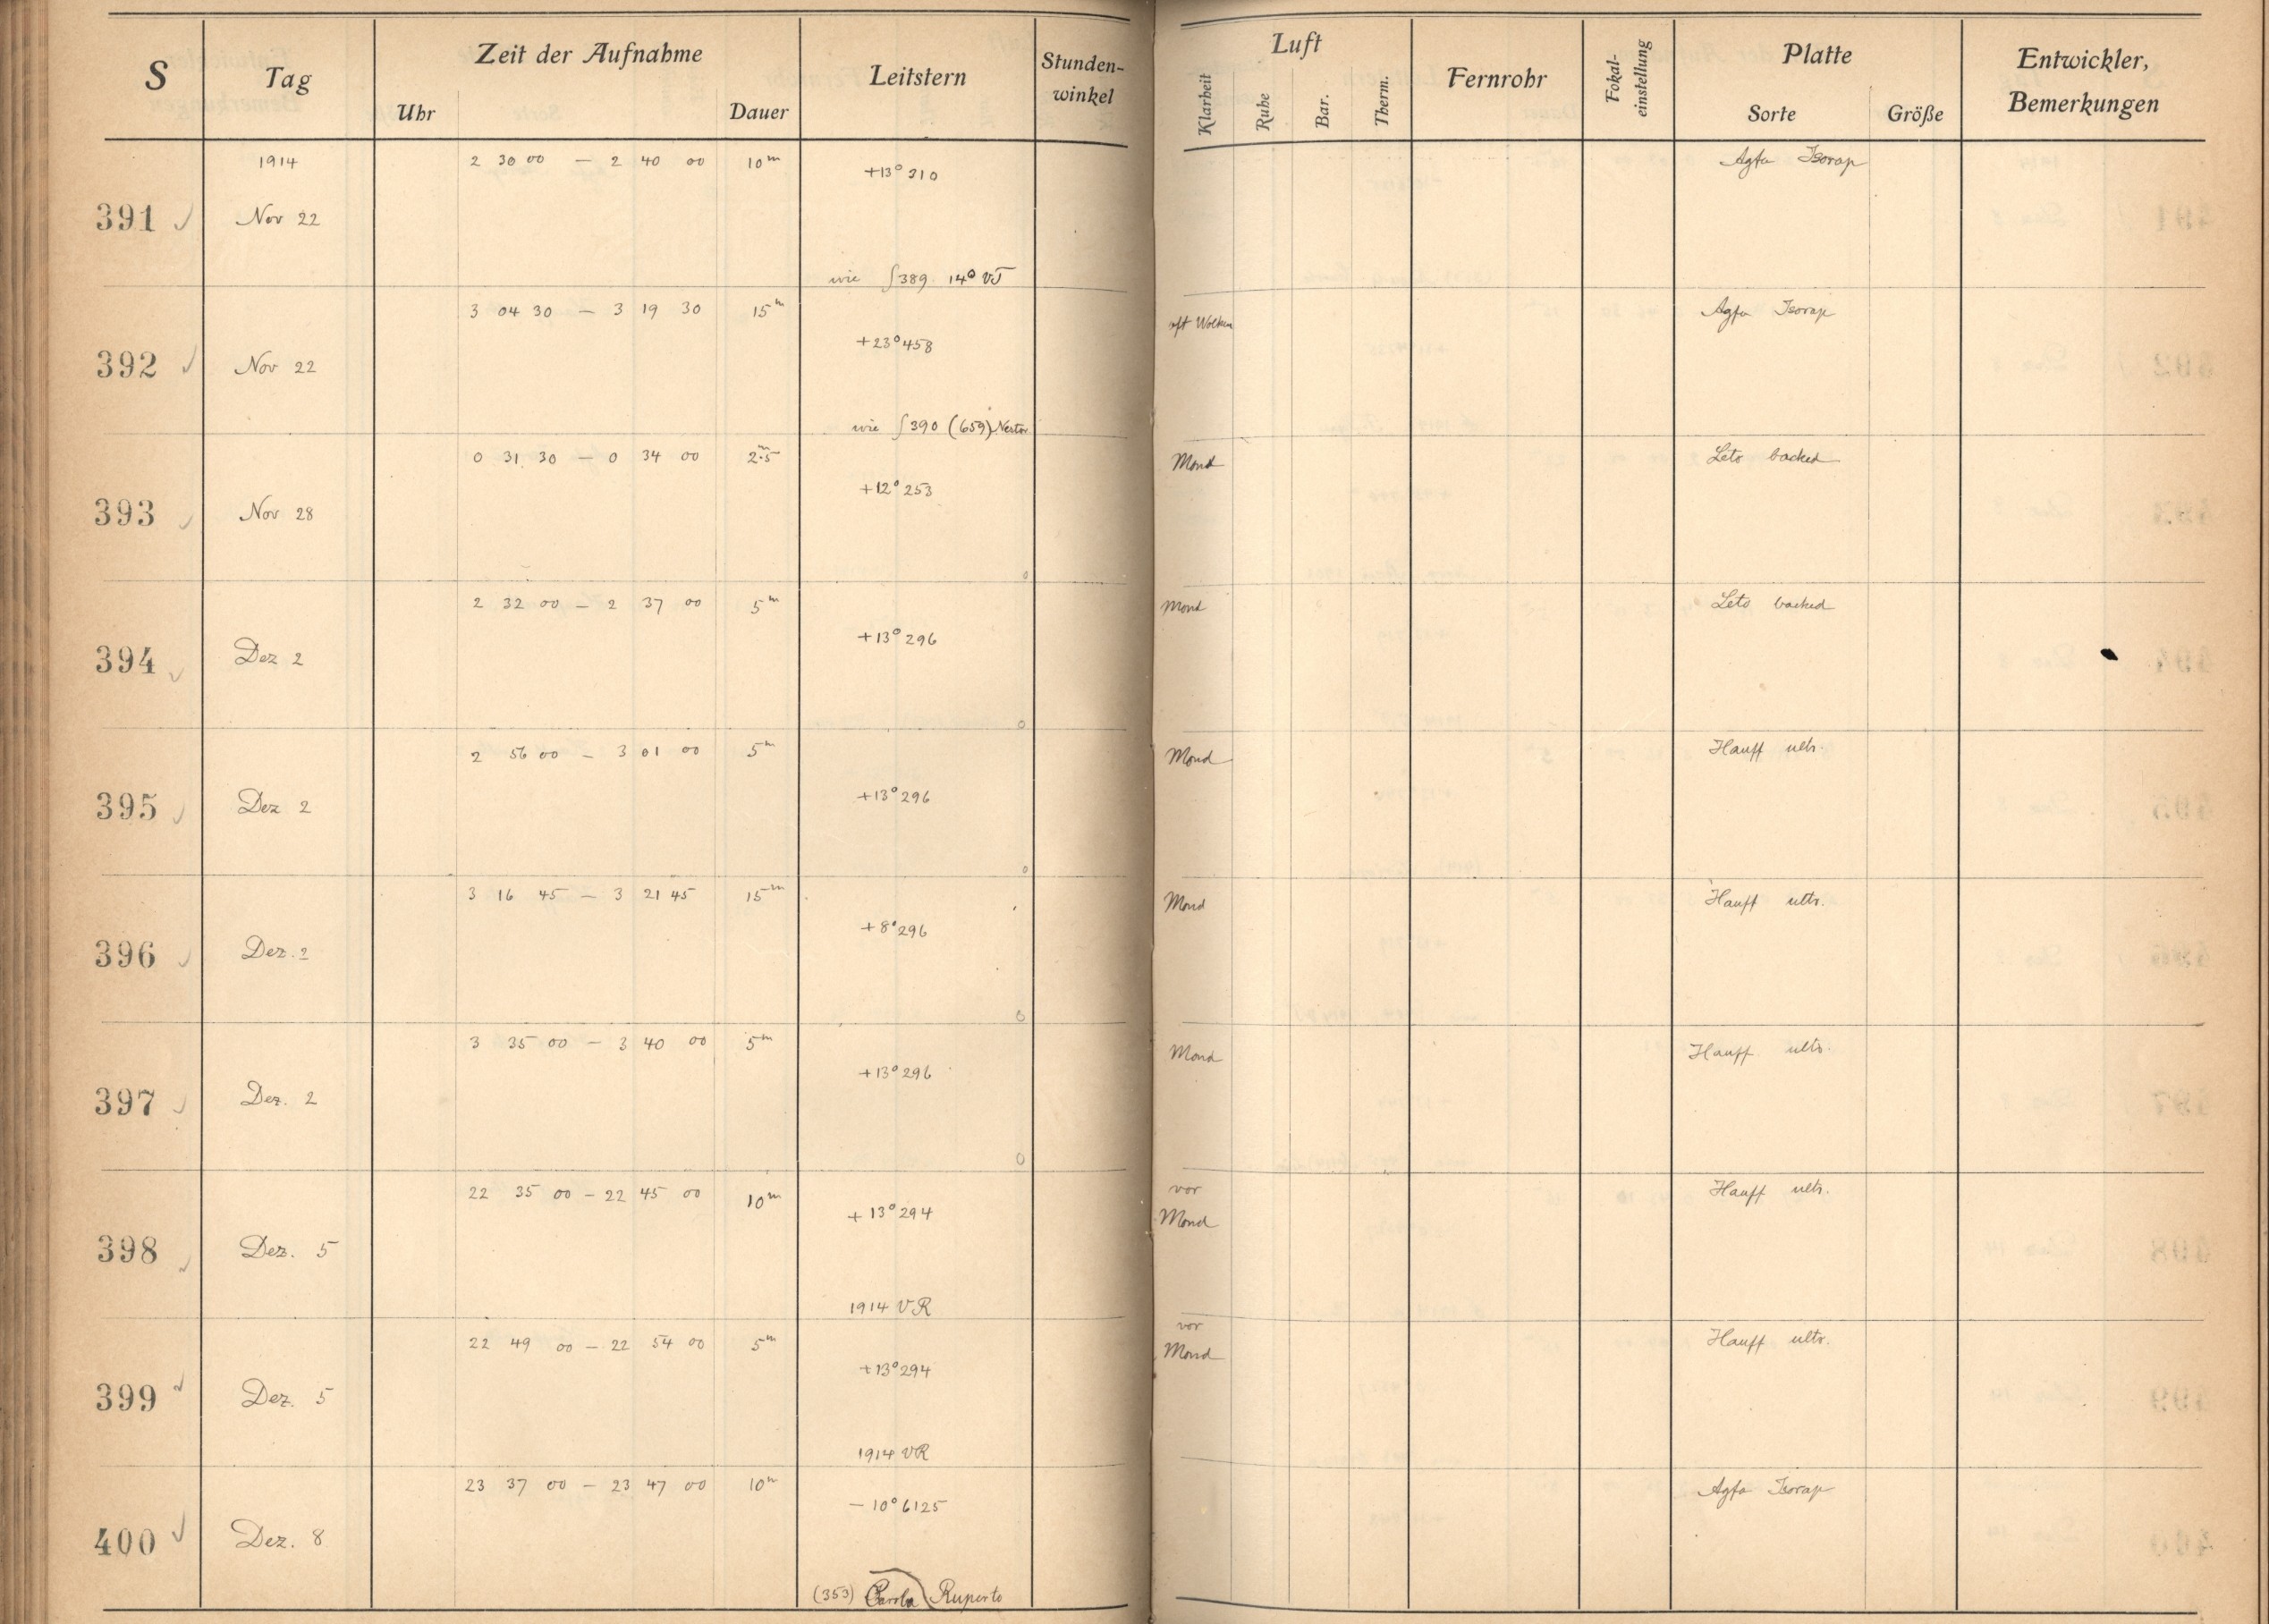 S Tag Zeit der Aufnahme Leitstern Stunden-winkel Luft Fernrohr Fokal-einstellung Platte Entwickler, Bemerkungen
Uhr Dauer Klarheit Ruhe Bar. Therm. Sorte Größe
1914 2 30 00 — 2 40 00 10m Agfa Isorap
+13° 310
391 Nov 22
wie S 389 14° VJ
3 04 30 — 3 19 30 15m oft Wolken Agfa Isorap
+23° 458
392 Nov 22
wie S 390 (659) Nestor
0 31 30 — 0 34 00 2.5m Mond Leto backed
+12° 253
393 Nov 28
2 32 00 — 2 37 00 5m Mond Leto backed
+13° 296
394 Dez 2
2 56 00 — 3 01 00 5m Mond Hauff ultr.
+13° 296
395 Dez 2
3 16 45 — 3 21 45 15m Mond Hauff ultr.
+8° 296
396 Dez. 2
3 35 00 — 3 40 00 5m Mond Hauff ultr.
+13° 296
397 Dez. 2
22 35 00 — 22 45 00 10m vor Mond Hauff ultr.
+13° 294
398 Dez. 5
1914 VR
22 49 00 — 22 54 00 5m vor Mond Hauff ultr.
+13° 294
399 Dez. 5
1914 VR
23 37 00 — 23 47 00 10m Agfa Isorap
—10° 6125
400 Dez. 8
(353) Carola Ruperto